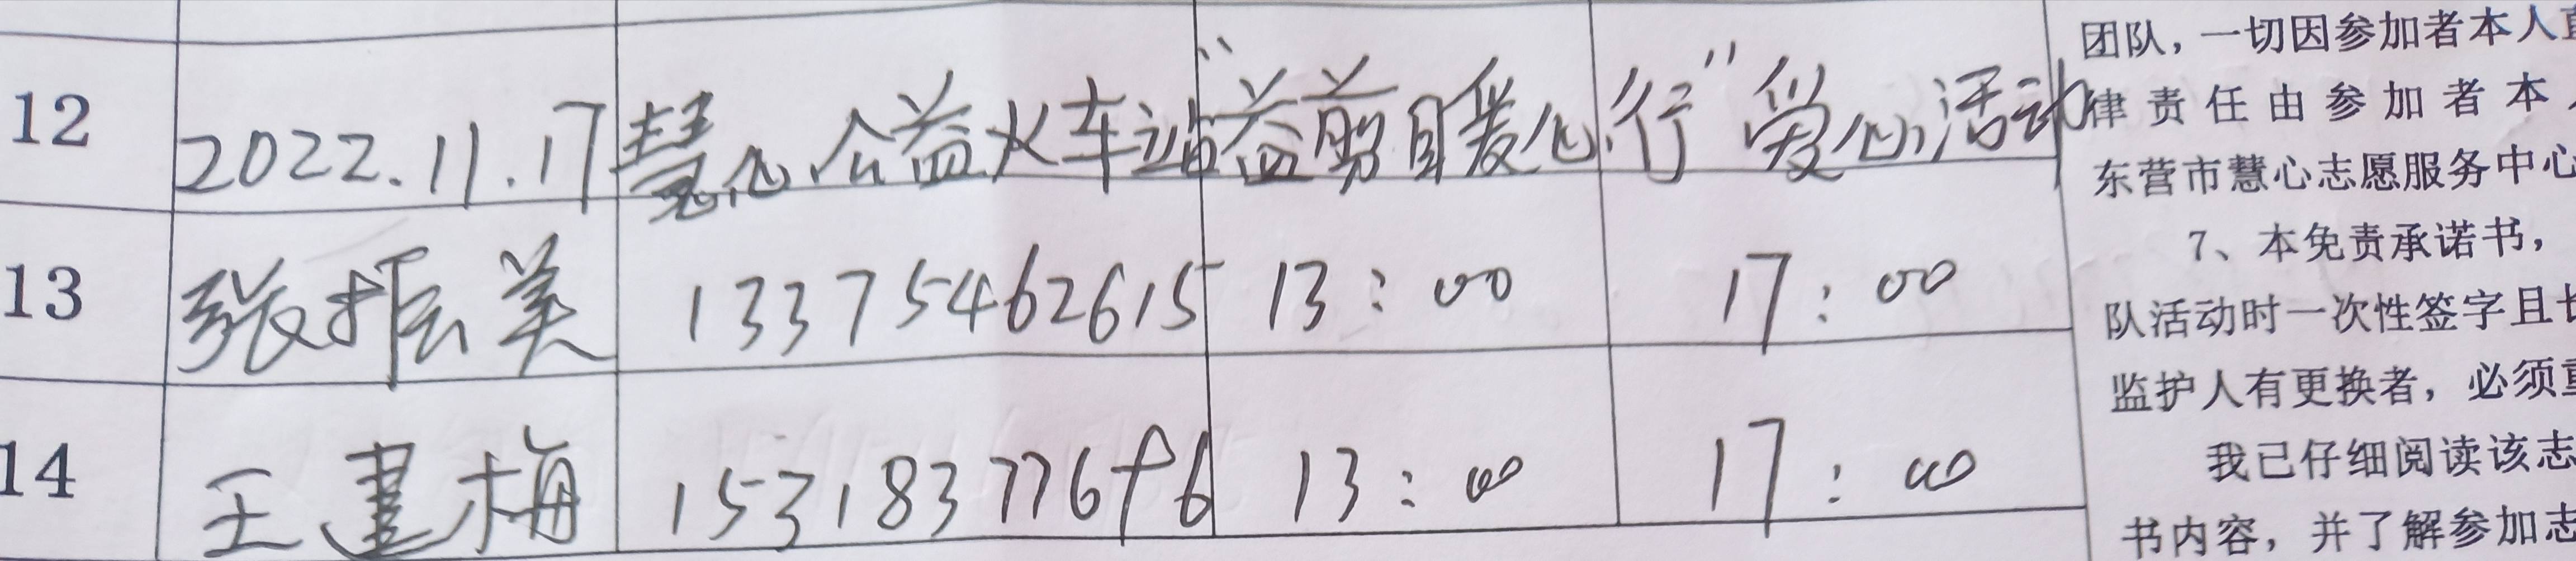 12 2022.11.17 慧心公益火车站"益剪暖心行"爱心活动
13 张振美 13375462615 13:00 17:00
14 王建梅 15318377696 13:00 17:00
团队，一切因参加者本人
律责任由参加者本
东营市慧心志愿服务中心
7、本免责承诺书，
队活动时一次性签字且
监护人有更换者，必须
我已仔细阅读该志
书内容，并了解参加志